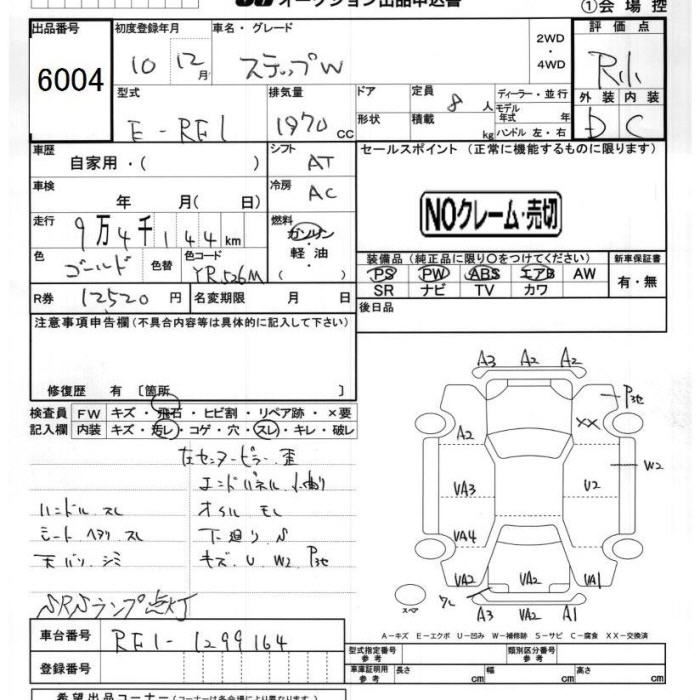 オークション出品申込書 ①会場控
出品番号 初度登録年月 車名・グレード 評価点
6004 10 12月 ステップW 2WD ・ 4WD R小
型式 排気量 ドア 定員 8人 ディーラー・並行 外装 内装
E-RF1 1970cc 形状 積載 kg モデル年式 年 ハンドル 左・右 D C
車歴 自家用・( ) シフト AT セールスポイント (正常に機能するものに限ります)
車検 年 月( 日) 冷房 AC
NOクレーム・売切
走行 9万4千144km 燃料 ガソリン・軽油・( )
色 ゴールド 色替 色コード YR526M
装備品 (純正品に限り○をつけてください) 新車保証書
PS PW ABS エアB AW 有・無
SR ナビ TV カワ
R券 12520円 名変期限 月 日 後日品
注意事項申告欄(不具合内容等は具体的に記入して下さい)
修復歴 有 〔箇所 〕
検査員 FW キズ・飛石・ヒビ割・リペア跡・×要
記入欄 内装 キズ・汚レ・コゲ・穴・スレ・キレ・破レ
左センターピラー 歪
エンドパネル 小曲り
ハンドル スレ オイル モレ
シート ヘタリ スレ 下廻り S
天バリ シミ キズ U W2 P
SRSランプ点灯
A3 A2 A2
P
A2 XX
W2
VA3 U2
VA4
VA2 VA2 VA1
スペア ワレ A3 VA2 A1
A-キズ E-エクボ U-凹み W-補修跡 S-サビ C-腐食 XX-交換済
車台番号 RF1-1299164
型式指定番号 参考 類別区分番号 参考
登録番号 車庫証明用 参考 長さ cm 幅 cm 高さ cm
希望出品コーナー(コーナーは各会場により異なります)